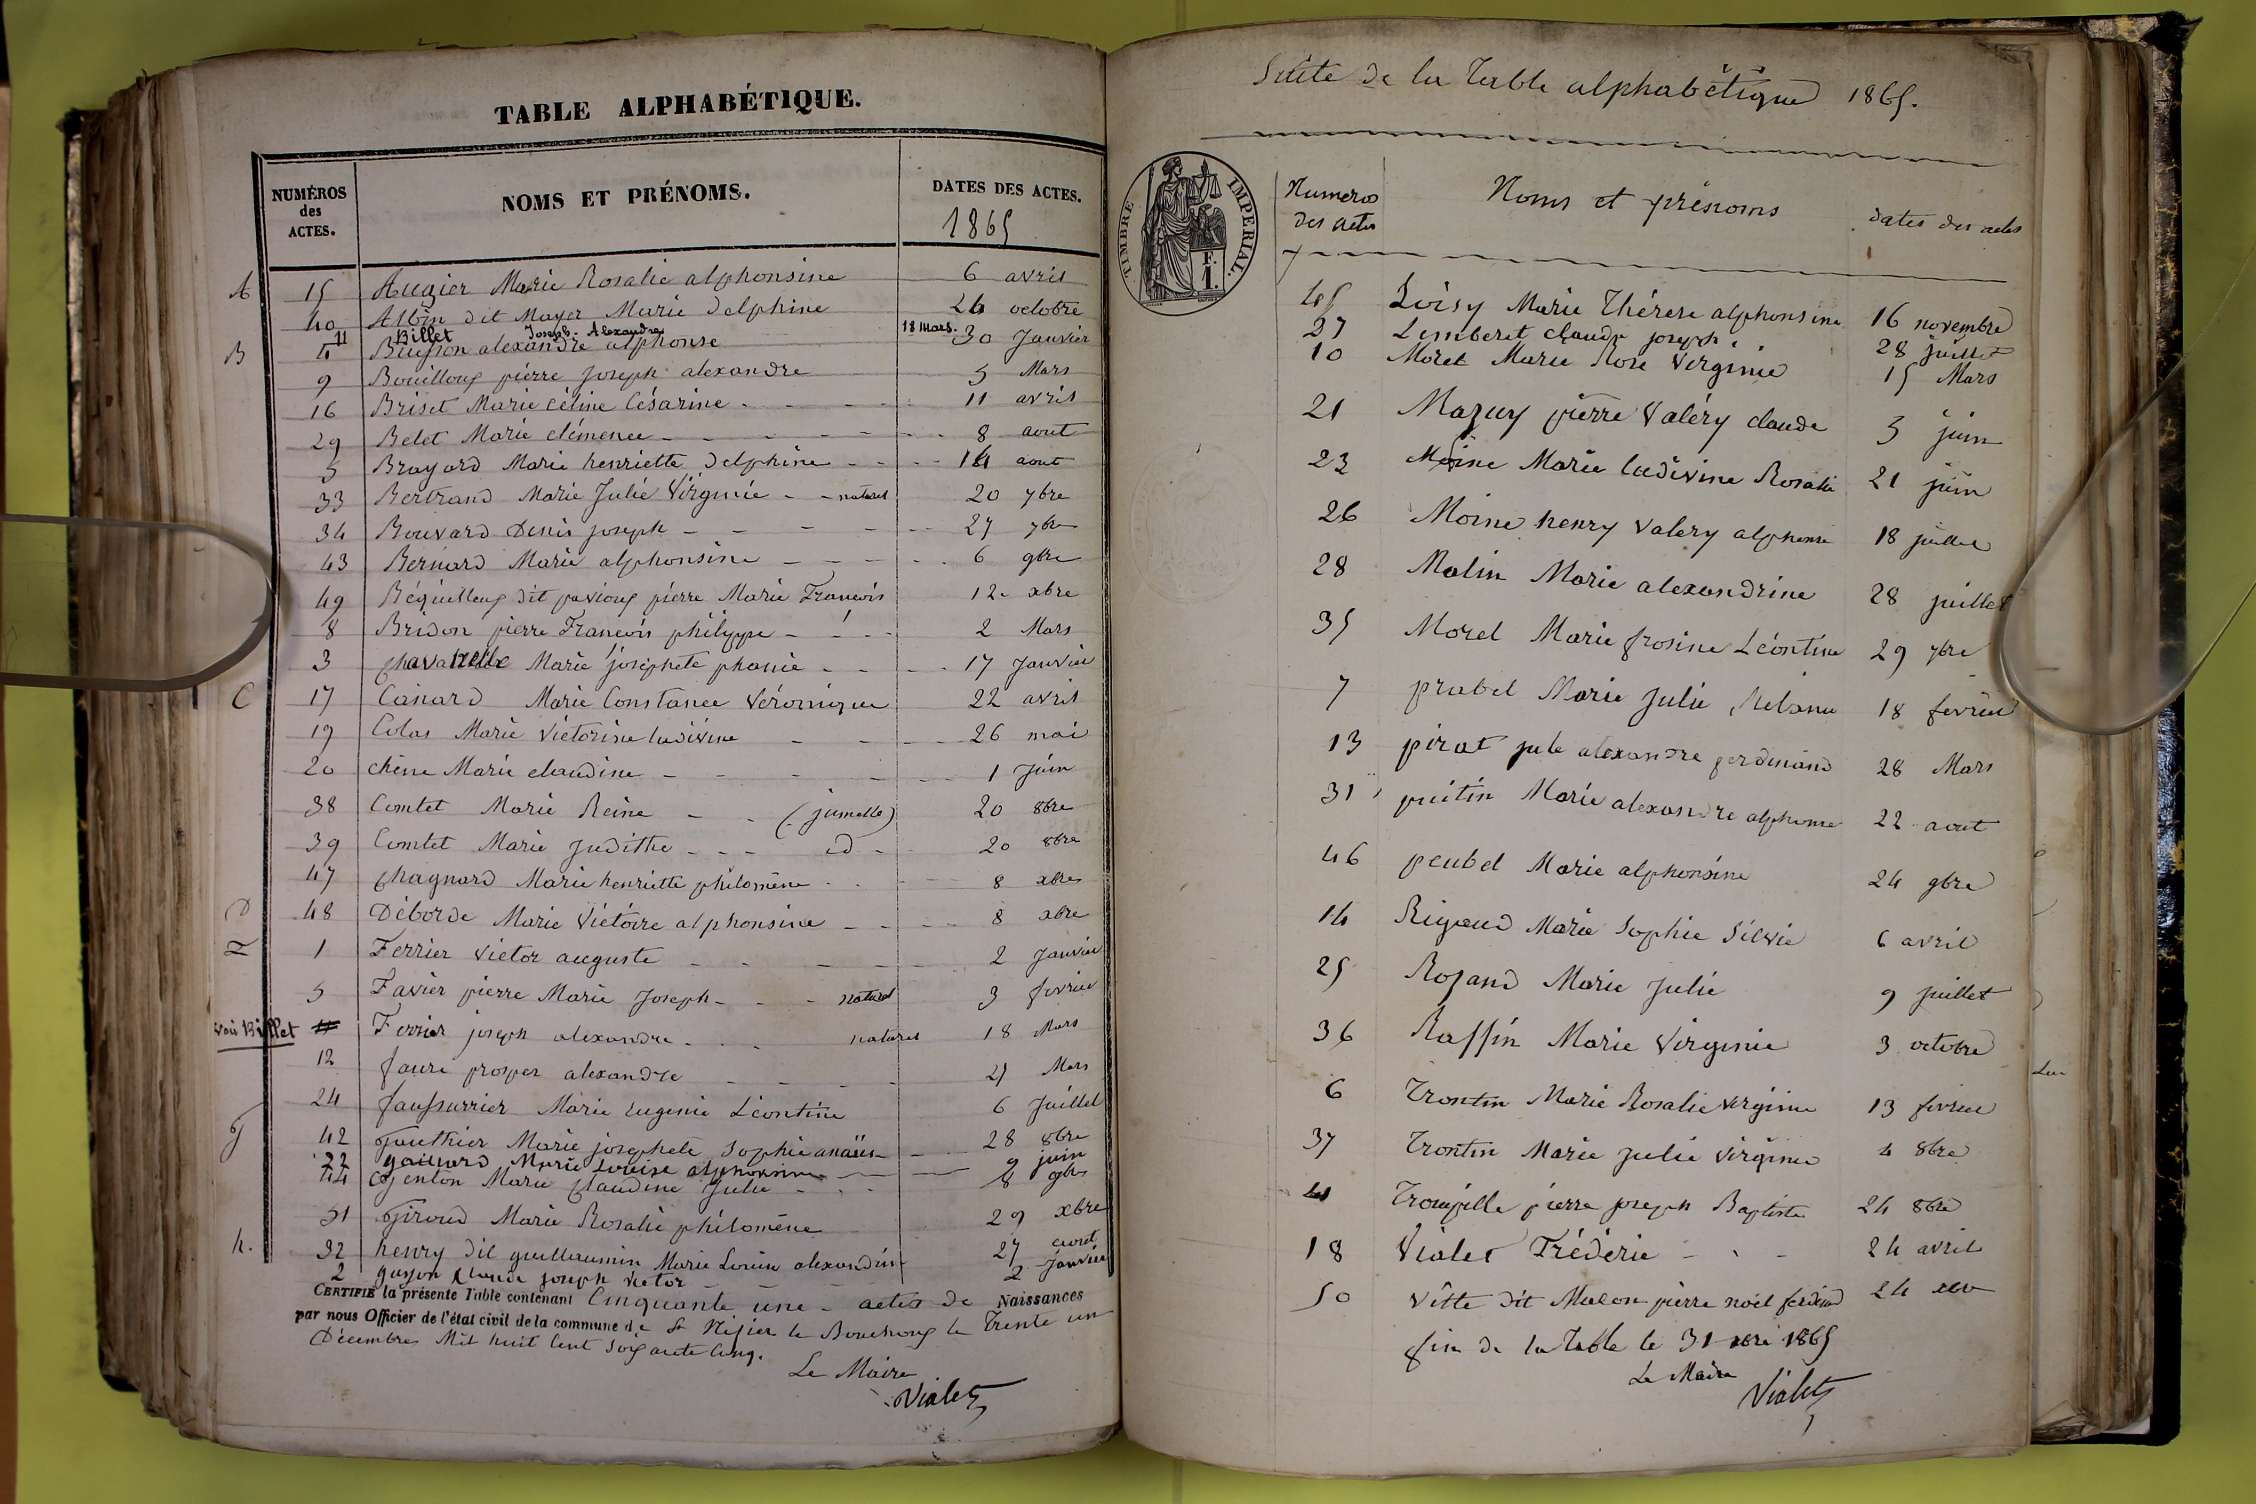 TABLE ALPHABÉTIQUE.
NUMÉROS des ACTES. NOMS ET PRÉNOMS. DATES DES ACTES.
1865
A 15 Augier Marie Rosalie alphonsine 6 avril
40 Albin dit Mayer Marie Delphine 24 octobre
11 Billet Joseph-Alexandre 18 mars.
B 4 Buisson alexandre alphonse 30 Janvier
9 Bouilloux pierre Joseph alexandre 5 Mars
16 Briset Marie Céline Césarine 11 avril
29 Belet Marie clémence 8 aout
5 Brayard Marie henriette Delphine 14 aout
33 Bertrand Marie Julie Virginie naturel 20 7bre
34 Bouvard Denis joseph 27 7bre
43 Bernard Marie alphonsine 6 9bre
49 Béquilloux dit pavioux pierre Marie François 12 xbre
8 Bridon pierre François philippe 2 Mars
3 Marie josephete phanie 17 Janvier
C 17 Canard Marie Constance Véronique 22 avril
19 Colas Marie Victorine ludivine 26 mai
20 chêne Marie claudine 1 Juin
38 Comtet Marie Reine (jumelle) 20 8bre
39 Comtet Marie Judithe id 20 8bre
47 Chagnard Marie henriette philomène 8 xbre
D 48 Déborde Marie Victoire alphonsine 8 xbre
F 1 Ferrier victor auguste 2 Janvier
5 Favier pierre Marie Joseph naturel 3 fevrier
Voir Billet 11 Ferrier joseph alexandre naturel 18 Mars
12 faure prosper alexandre 21 Mars
24 faussurier Marie eugenie Léontine 6 Juillet
G 42 Gauthier Marie josephete Sophie anaïse 28 8bre
22 gaillard Marie Louise alphonsine 9 juin
44 Genton Marie Claudine Julie 8 9bre
51 Giroud Marie Rosalie philomène 29 xbre
h. 32 henry dit guillaumin Marie Louise alexandrine 27 aout
2 guyon Claude joseph victor 2 Janvier
CERTIFIÉ la présente Table contenant Cinquante une actes de Naissances
par nous Officier de l'état civil de la commune de St Nizier le Bouchoux le Trente un
Décembre Mil huit Cent Soixante Cinq.
Le Maire
Vialet
Suite de la Table alphabétique 1865.
TIMBRE IMPERIAL.
F. 1.
Numeros des actes Noms et prénoms dates des actes
45 Loisy Marie Thérese alphonsine 16 novembre
27 Lemberet claude joseph 28 juillet
10 Morel Marie Rose Virginie 15 Mars
21 Mazuy pierre Valéry claude 5 juin
23 Moine Marie ludivine Rosalie 21 juin
26 Moine henry valery alphonse 18 juillet
28 Malin Marie alexandrine 28 juillet
35 Morel Marie frosine Léontine 29 7bre
7 prabel Marie Julie Melanie 18 fevrier
13 pirat jule alexandre ferdinand 28 Mars
31 puitin Marie alexandre alphonse 22 aout
46 peubel Marie alphonsine 24 9bre
14 Rigaud Marie Sophie Silvie 6 avril
25 Rozand Marie Julie 9 juillet
36 Raffin Marie Virginie 3 octobre
6 Trontin Marie Rosalie virginie 13 fevrier
37 Trontin Marie Julie virginie 4 8bre
41 pierre joseph Baptiste 24 8bre
18 Vialet Fréderic 24 avril
50 vitte dit Macon pierre noël ferdinand 24 xbre
fin de la Table le 31 xbre 1865
Le Maire
Vialet